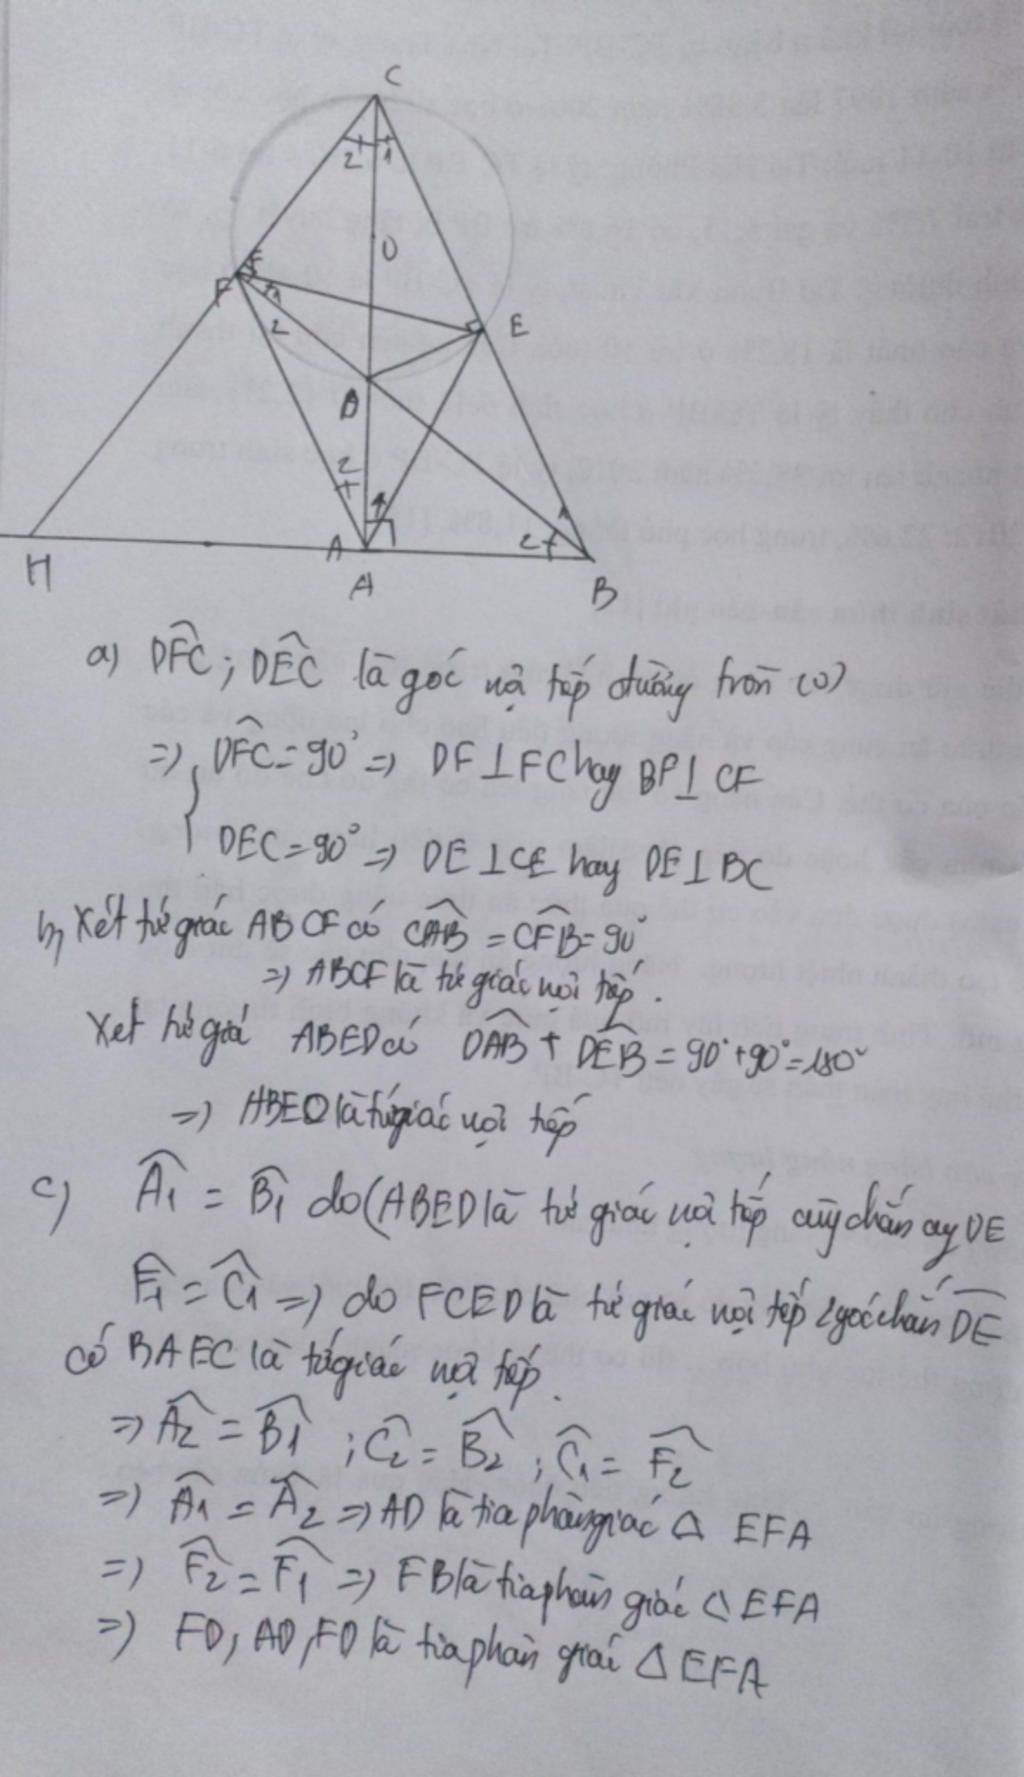 C
2 1
O
F
F 1
2
E
D
2
1
1
A
2
H
A
B
a) DFC ; DEC là góc nội tiếp đường tròn (O)
=> DFC = 90° => DF ⊥ FC hay BF ⊥ CF
DEC = 90° => DE ⊥ CE hay DE ⊥ BC
b, Xét tứ giác ABCF có CAB = CFB = 90°
=> ABCF là tứ giác nội tiếp.
Xét tứ giá ABED có DAB + DEB = 90° + 90° = 180°
=> ABED là tứ giác nội tiếp
c) A1 = B1 do (ABED là tứ giác nội tiếp cùng chắn DE
F1 = C1 => do FCED là tứ giác nội tiếp 2 góc chắn DE
có BAFC là tứ giác nội tiếp.
=> A2 = B1 ; C2 = B2 ; C1 = F2
=> A1 = A2 => AD là tia phân giác Δ EFA
=> F2 = F1 => FB là tia phân giác Δ EFA
=> FD, AD, FD là tia phân giác Δ EFA